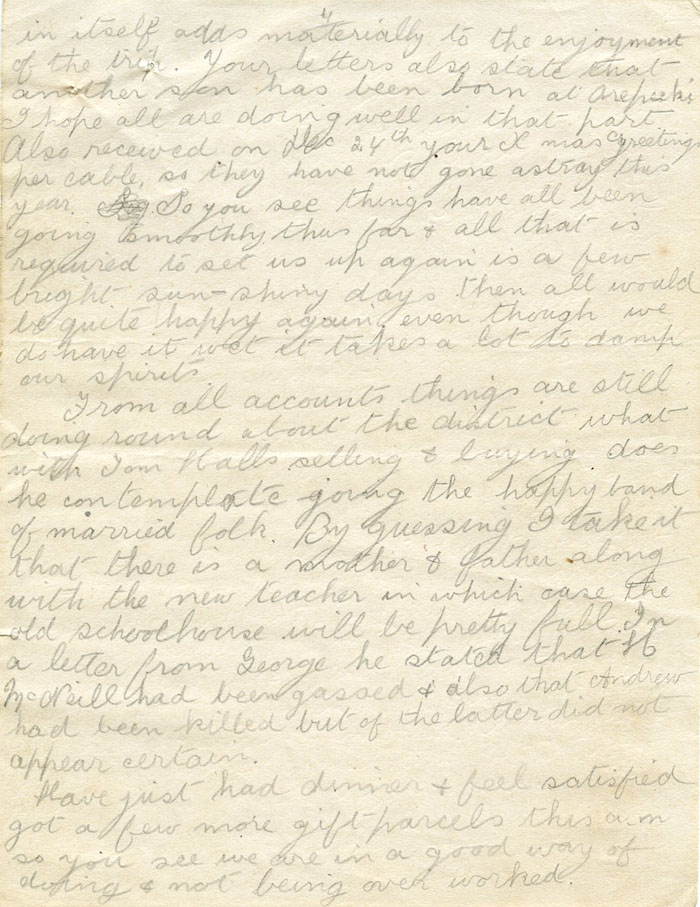 in itself adds materially to the enjoyment
of the trip. Your letters also state that
another son has been born at Arepuki
I hope all are doing well in that part
Also received on Dec 24th your X mas greetings
per cable, so they have not gone astray this
year. So you see things have all been
going smoothly thus far & all that is
required to set us up again is a few
bright sun-shiny days then all would
be quite happy again, even though we
do have it wet it takes a lot to damp
our spirits
From all accounts things are still
doing round about the district what
with Tom Halls selling & buying does
he contemplate going the happy band
of married folk. By guessing I take it
that there is a mother & father along
with the new teacher in which case the
old schoolhouse will be pretty full. In
a letter from George he stated that H
McNeill had been gassed & also that Andrew
had been killed but of the latter did not
appear certain.
Have just had dinner & feel satisfied
got a few more gift parcels this a.m
so you see we are in a good way of
doing & not being over worked.